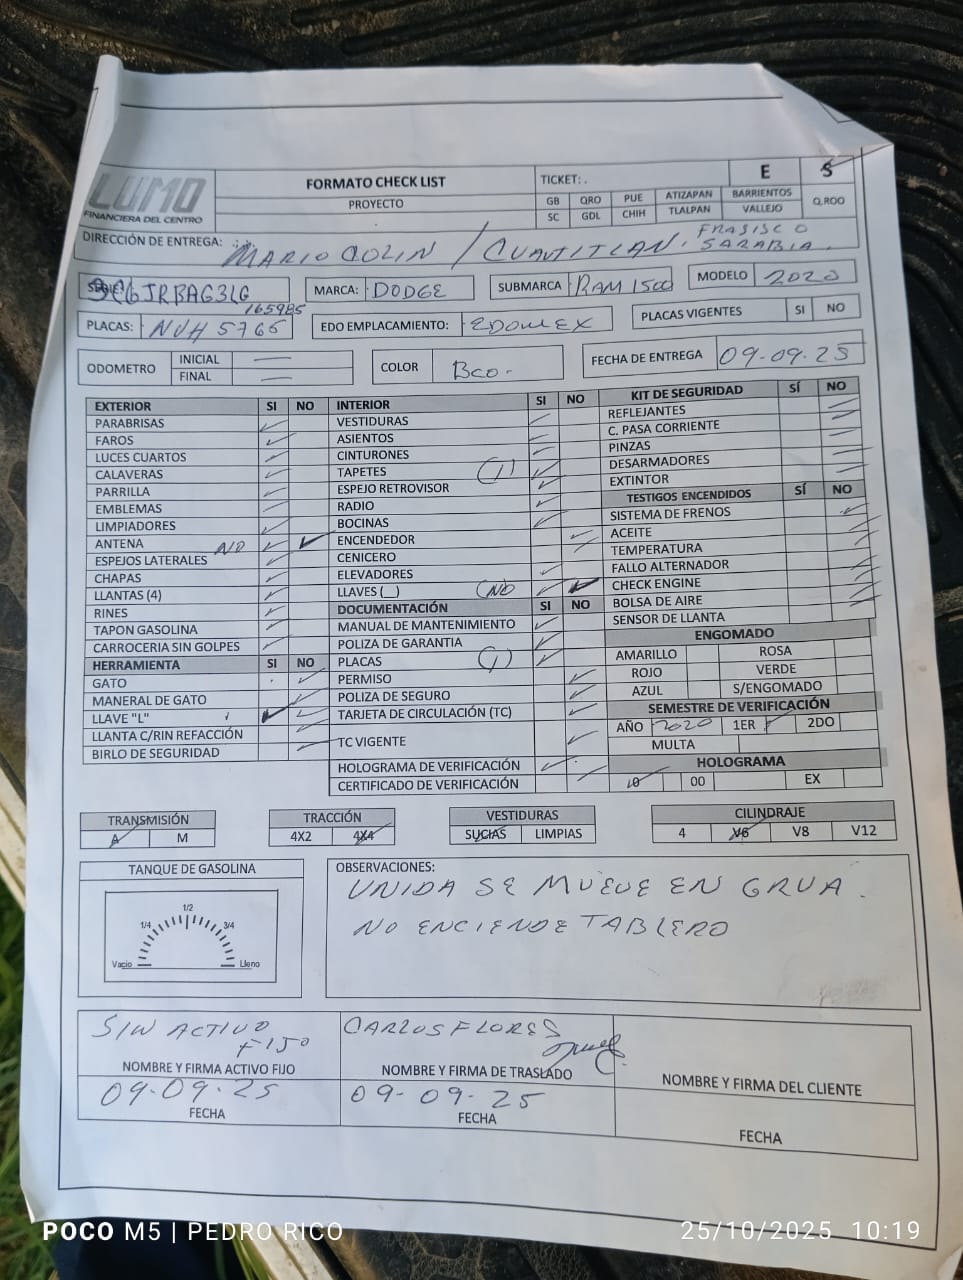 LUMO
FINANCIERA DEL CENTRO
FORMATO CHECK LIST
PROYECTO
TICKET: .
E
S
GB QRO PUE ATIZAPAN BARRIENTOS Q.ROO
SC GDL CHIH TLALPAN VALLEJO
DIRECCIÓN DE ENTREGA: MARIO COLIN / CUAUTITLAN. FRASISCO SARABIA.
SERIE 3C6JRBAG3LG 165985
MARCA: DODGE
SUBMARCA RAM 1500
MODELO 2020
PLACAS: NUH 5765
EDO EMPLACAMIENTO: EDOMEX
PLACAS VIGENTES SI NO
ODOMETRO INICIAL —
FINAL —
COLOR Bco.
FECHA DE ENTREGA 09-09-25
EXTERIOR SI NO
PARABRISAS
FAROS
LUCES CUARTOS
CALAVERAS
PARRILLA
EMBLEMAS
LIMPIADORES
ANTENA NO
ESPEJOS LATERALES
CHAPAS
LLANTAS (4)
RINES
TAPON GASOLINA
CARROCERIA SIN GOLPES
HERRAMIENTA SI NO
GATO
MANERAL DE GATO
LLAVE "L"
LLANTA C/RIN REFACCIÓN
BIRLO DE SEGURIDAD
INTERIOR SI NO
VESTIDURAS
ASIENTOS
CINTURONES
TAPETES (1)
ESPEJO RETROVISOR
RADIO
BOCINAS
ENCENDEDOR
CENICERO
ELEVADORES
LLAVES (__) (NO)
DOCUMENTACIÓN SI NO
MANUAL DE MANTENIMIENTO
POLIZA DE GARANTIA
PLACAS (1)
PERMISO
POLIZA DE SEGURO
TARJETA DE CIRCULACIÓN (TC)
TC VIGENTE
HOLOGRAMA DE VERIFICACIÓN
CERTIFICADO DE VERIFICACIÓN
KIT DE SEGURIDAD SÍ NO
REFLEJANTES
C. PASA CORRIENTE
PINZAS
DESARMADORES
EXTINTOR
TESTIGOS ENCENDIDOS SÍ NO
SISTEMA DE FRENOS
ACEITE
TEMPERATURA
FALLO ALTERNADOR
CHECK ENGINE
BOLSA DE AIRE
SENSOR DE LLANTA
ENGOMADO
AMARILLO ROSA
ROJO VERDE
AZUL S/ENGOMADO
SEMESTRE DE VERIFICACIÓN
AÑO 2020 1ER 2DO
MULTA
HOLOGRAMA
00 EX
TRANSMISIÓN
A M
TRACCIÓN
4X2 4X4
VESTIDURAS
SUCIAS LIMPIAS
CILINDRAJE
4 V6 V8 V12
TANQUE DE GASOLINA
1/2
1/4 3/4
Vacio Lleno
OBSERVACIONES:
UNIDA SE MUEVE EN GRUA.
NO ENCIENDE TABLERO
SIN ACTIVO
FIJO
NOMBRE Y FIRMA ACTIVO FIJO
09-09-25
FECHA
CARLOS FLORES
NOMBRE Y FIRMA DE TRASLADO
09-09-25
FECHA
NOMBRE Y FIRMA DEL CLIENTE
FECHA
POCO M5 | PEDRO RICO
25/10/2025 10:19